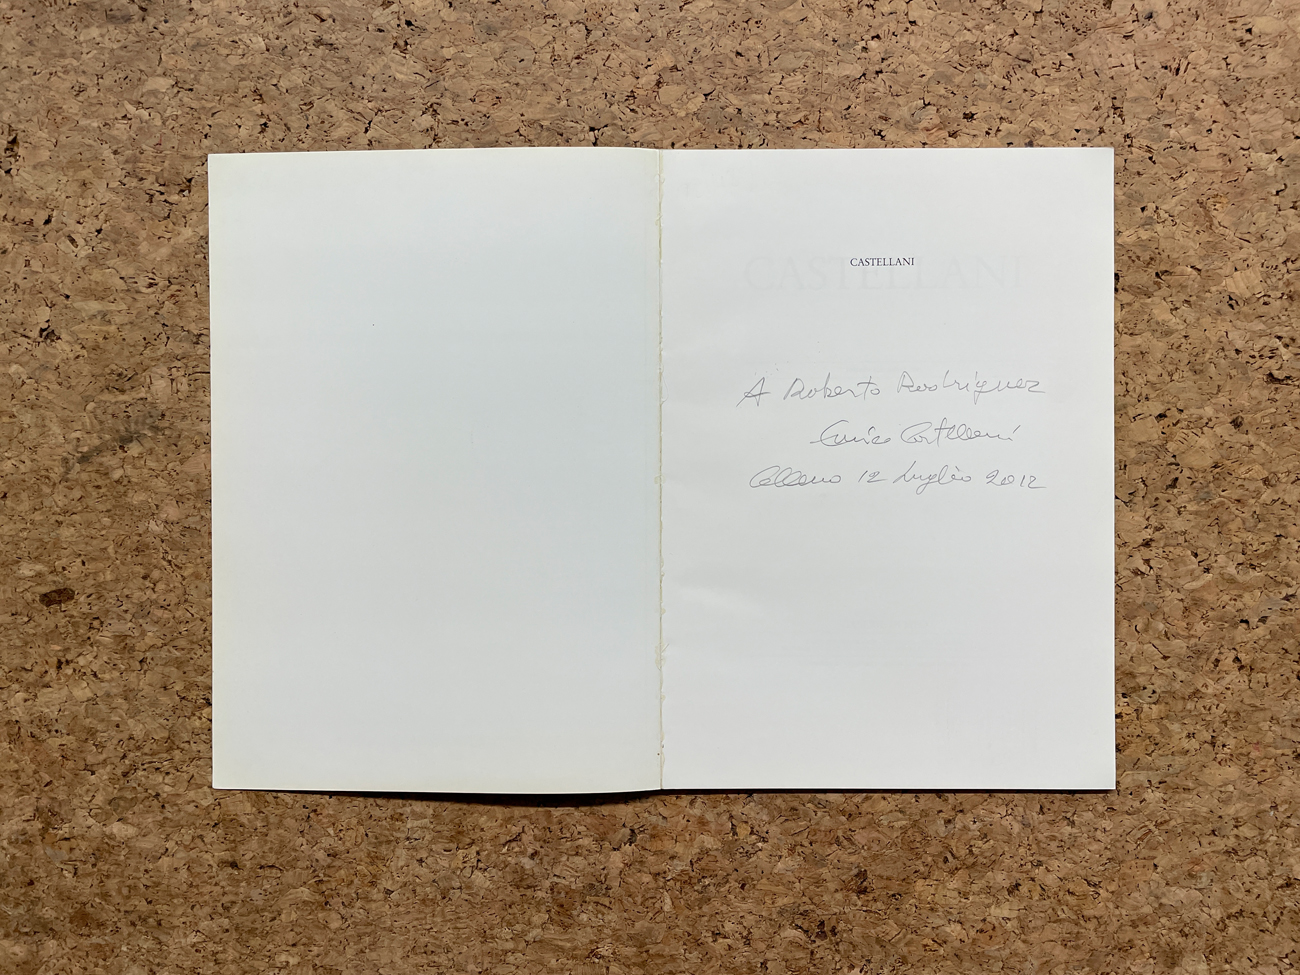 CASTELLANI
CASTELLANI
A Roberto Rodriguez
Enrico Castellani
Celleno 12 Luglio 2012